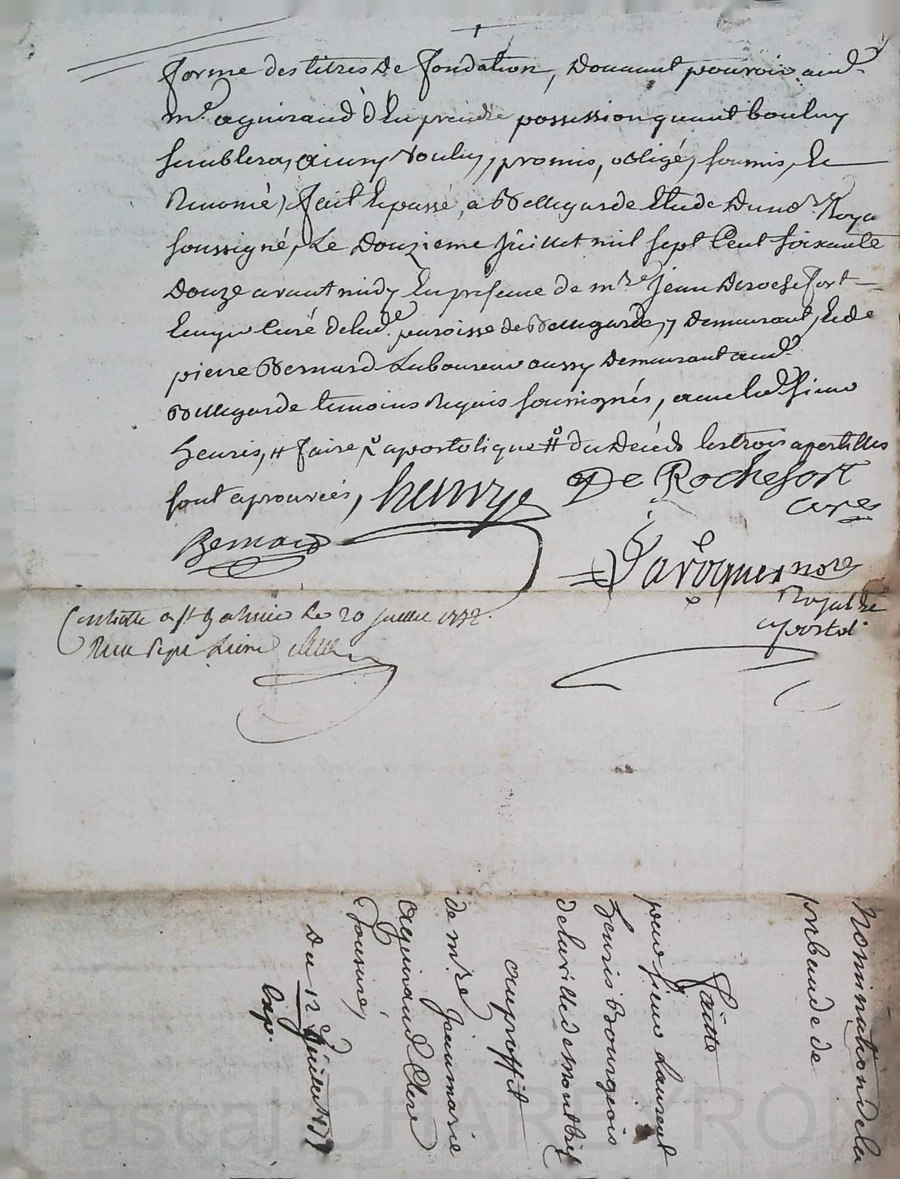 forme des titres de fondation, Donnant pouvoir aud.
m.e aguiraud d'En prendre possession quant bon luy
semblera, ainsy voulu, promis, obligé, soumis, Et
Renoncé, fait Et passé, a Bellegarde Etude Du no.re Roya
soussigné, Le Douzieme juillet mil sept Cent soixante
Douze avant midy En presence de m.re jean De rochefort
Curé de lad.e paroisse de Bellegarde, y Demeurant, Et de
pierre Bernard Laboureur aussy Demeurant aud.
Bellegarde temoins Requis soussignés, avec led. sieur
henris, # faire # apostolique # du Deceds les trois apostilles
sont aprouvées, henrys De Rochefort
curé
Bernard
Laroque nore
Royal Et
apostol.
Controllé a st galmier Le 20 juillet 1772.
Nomination de la
prebande de
faitte
par sieur Laurent
henris Bourgeois
de la ville de montbri
au proffit
de m.re jean marie
aguiraud Clerc
Tonsuré,
Du 12 juillet 177
Exp.
Pascal CHAREYRON